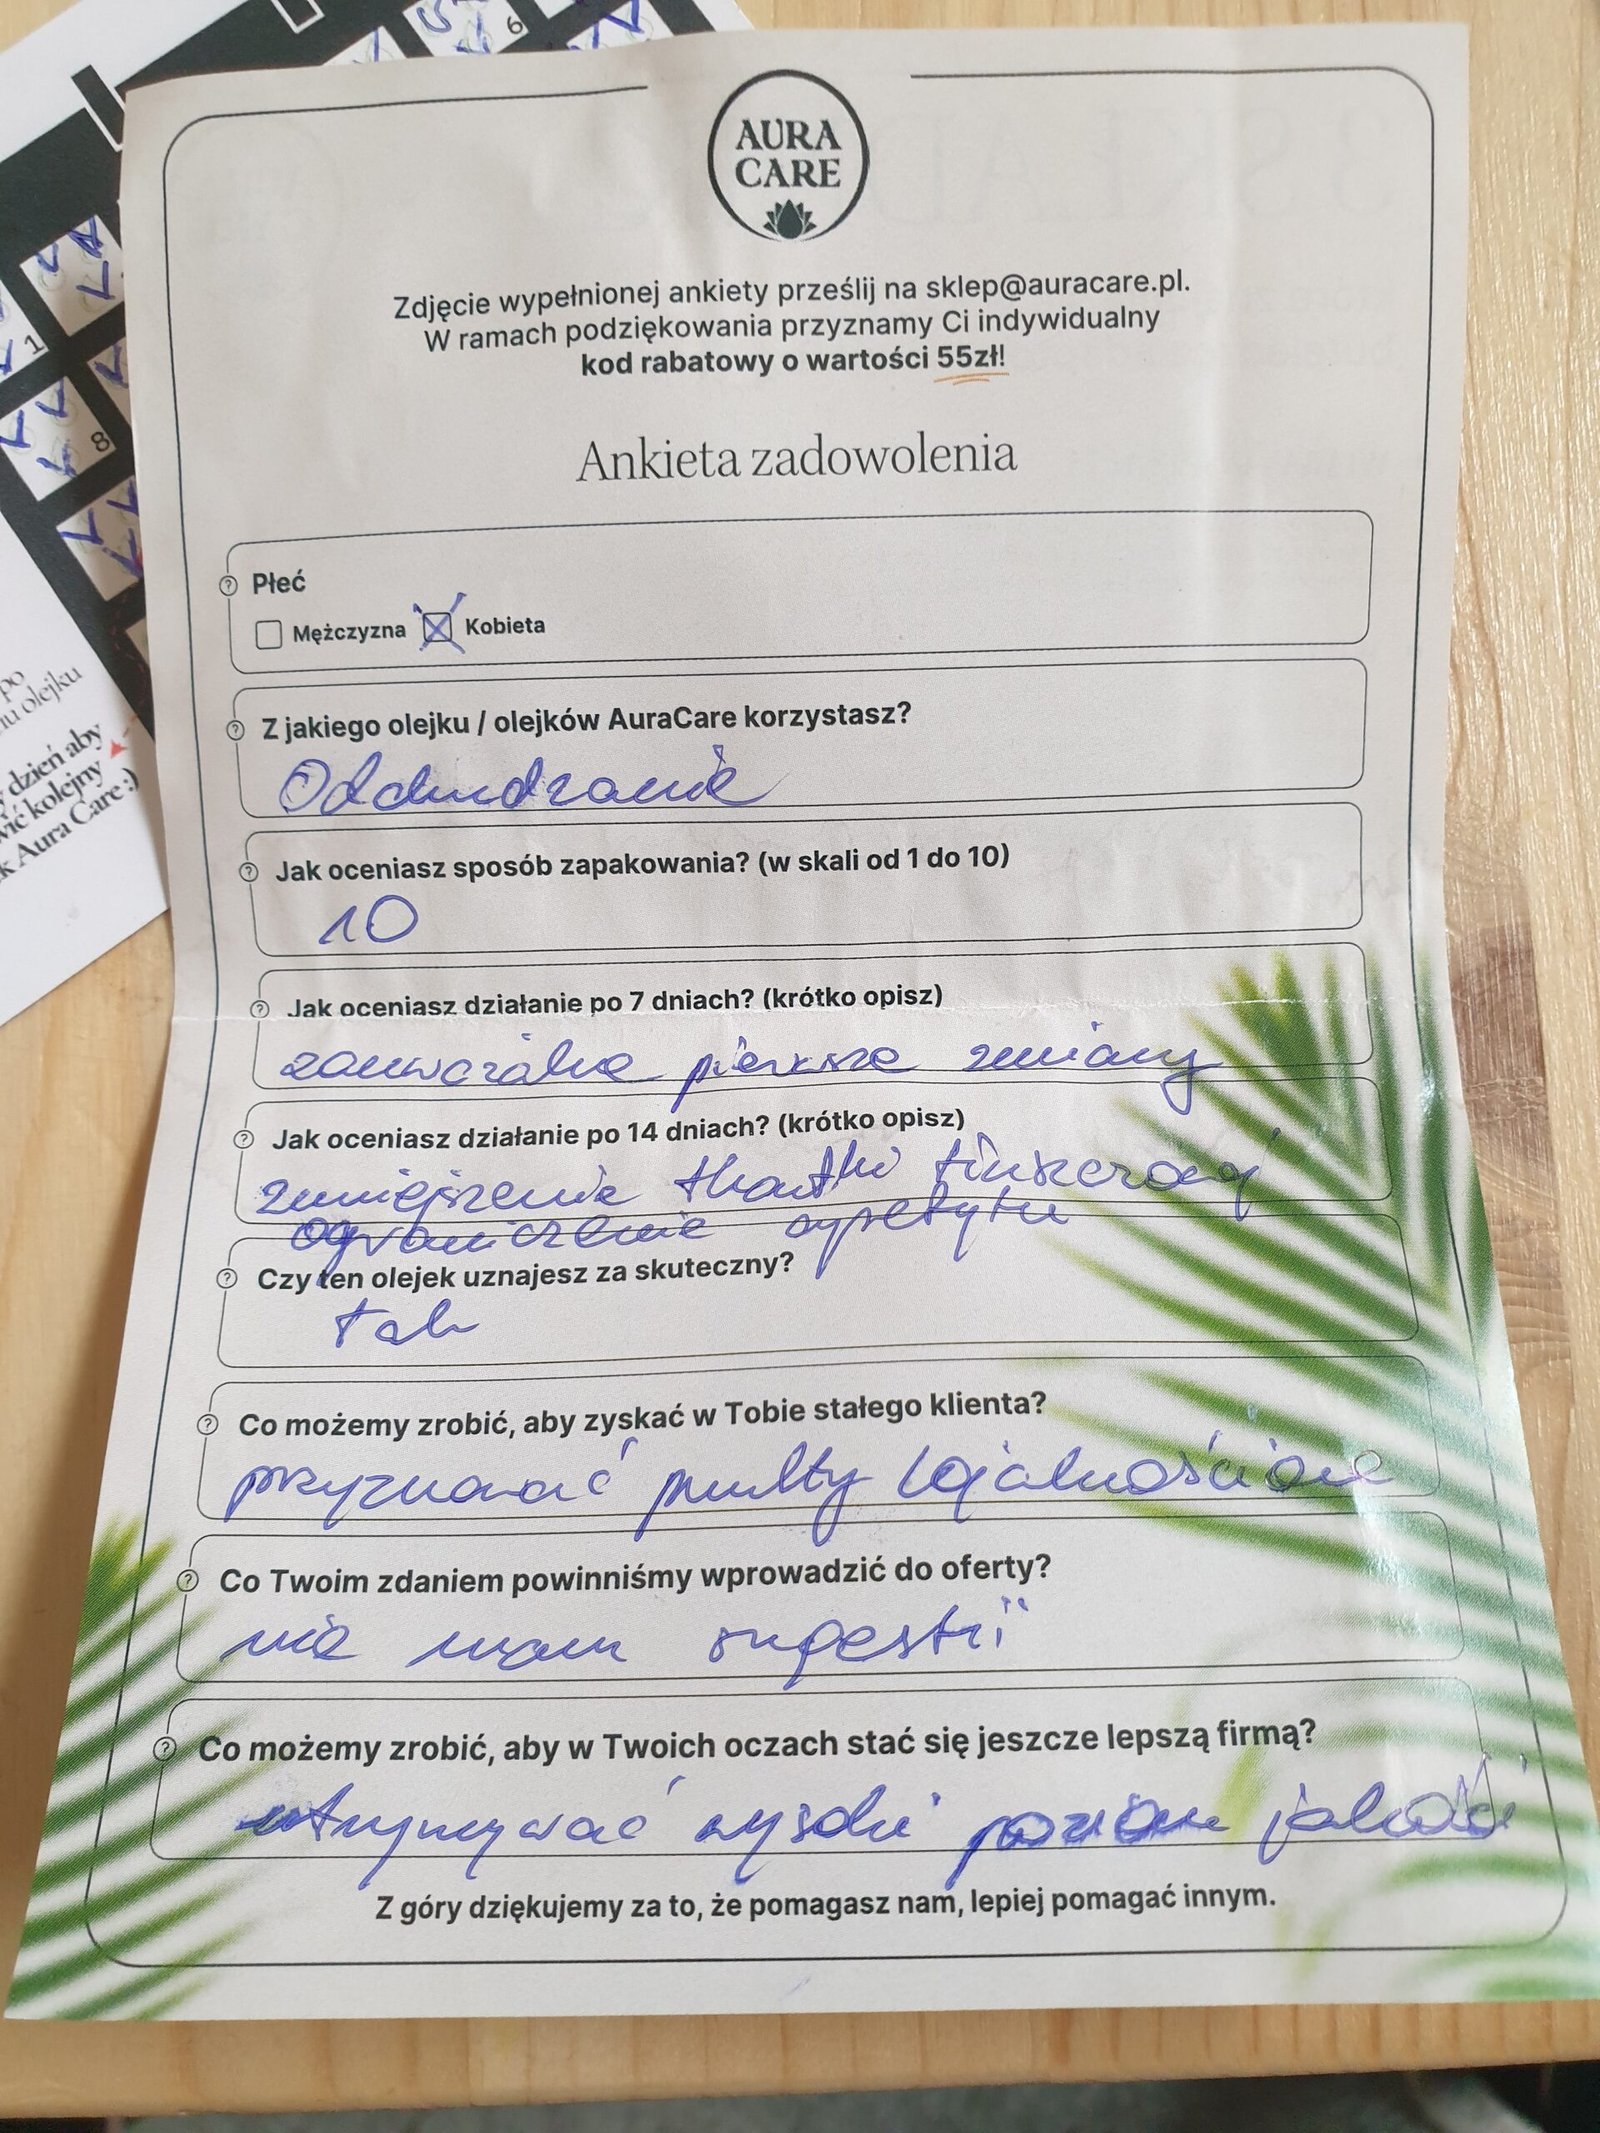 AURA
CARE
Zdjęcie wypełnionej ankiety prześlij na sklep@auracare.pl.
W ramach podziękowania przyznamy Ci indywidualny
kod rabatowy o wartości 55zł!
Ankieta zadowolenia
Płeć
Mężczyzna Kobieta
Z jakiego olejku / olejków AuraCare korzystasz?
Odchudzanie
Jak oceniasz sposób zapakowania? (w skali od 1 do 10)
10
Jak oceniasz działanie po 7 dniach? (krótko opisz)
zauważalne pierwsze zmiany
Jak oceniasz działanie po 14 dniach? (krótko opisz)
zmniejszenie tkanki tłuszczowej
ograniczenie apetytu
Czy ten olejek uznajesz za skuteczny?
tak
Co możemy zrobić, aby zyskać w Tobie stałego klienta?
przyznawać punkty lojalnościowe
Co Twoim zdaniem powinniśmy wprowadzić do oferty?
nie mam sugestii
Co możemy zrobić, aby w Twoich oczach stać się jeszcze lepszą firmą?
utrzymywać wysoki poziom jakości
Z góry dziękujemy za to, że pomagasz nam, lepiej pomagać innym.
6
1
8
po
olejku
dzień aby
kolejny
Aura Care :)